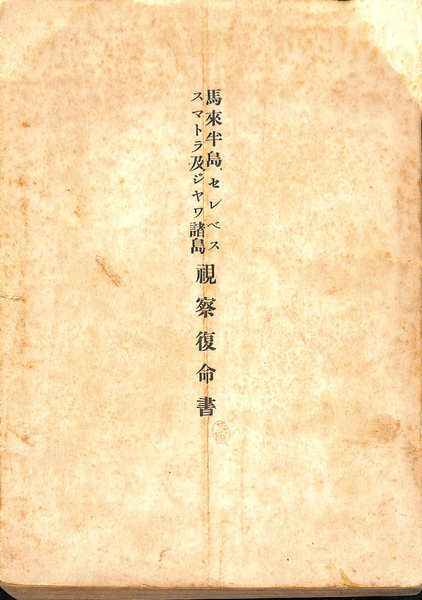 馬來半島、セレベス
スマトラ及ジヤワ諸島
視察復命書